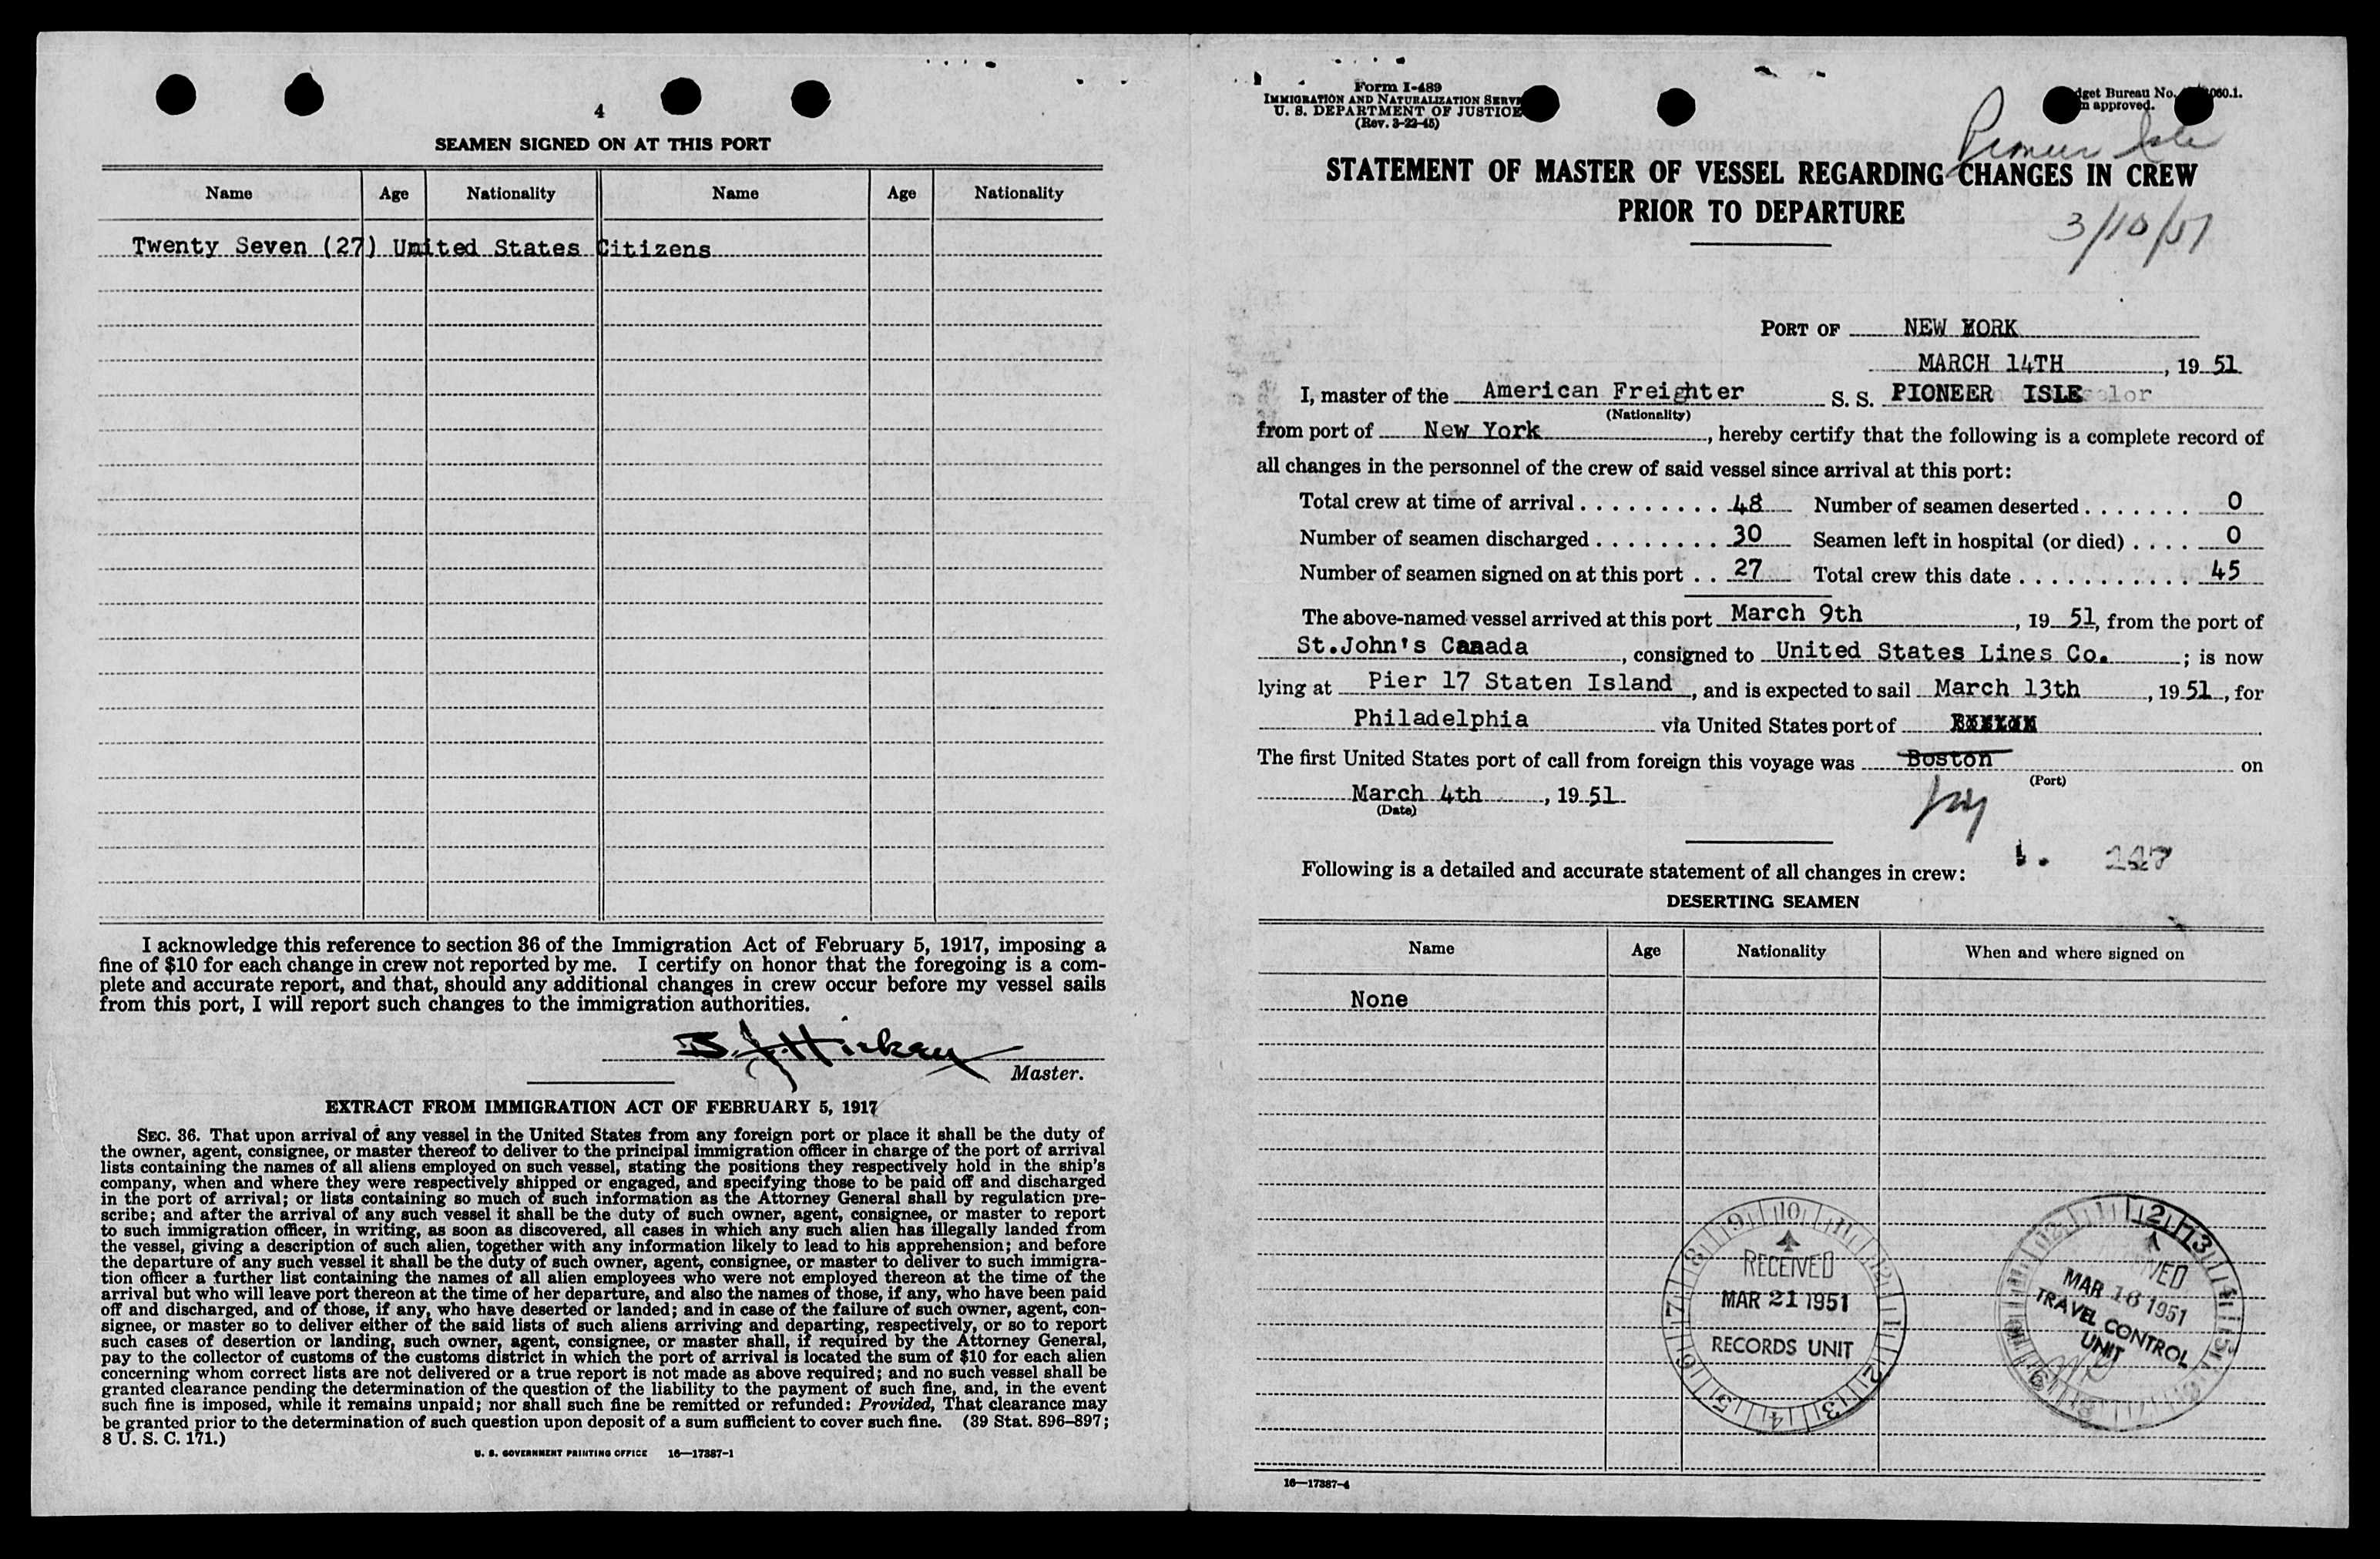 4
SEAMEN SIGNED ON AT THIS PORT
Name Age Nationality Name Age Nationality
Twenty Seven (27) United States Citizens
I acknowledge this reference to section 36 of the Immigration Act of February 5, 1917, imposing a
fine of $10 for each change in crew not reported by me. I certify on honor that the foregoing is a com-
plete and accurate report, and that, should any additional changes in crew occur before my vessel sails
from this port, I will report such changes to the immigration authorities.
B. J. Hickey
Master.
EXTRACT FROM IMMIGRATION ACT OF FEBRUARY 5, 1917
SEC. 36. That upon arrival of any vessel in the United States from any foreign port or place it shall be the duty of
the owner, agent, consignee, or master thereof to deliver to the principal immigration officer in charge of the port of arrival
lists containing the names of all aliens employed on such vessel, stating the positions they respectively hold in the ship's
company, when and where they were respectively shipped or engaged, and specifying those to be paid off and discharged
in the port of arrival; or lists containing so much of such information as the Attorney General shall by regulation pre-
scribe; and after the arrival of any such vessel it shall be the duty of such owner, agent, consignee, or master to report
to such immigration officer, in writing, as soon as discovered, all cases in which any such alien has illegally landed from
the vessel, giving a description of such alien, together with any information likely to lead to his apprehension; and before
the departure of any such vessel it shall be the duty of such owner, agent, consignee, or master to deliver to such immigra-
tion officer a further list containing the names of all alien employees who were not employed thereon at the time of the
arrival but who will leave port thereon at the time of her departure, and also the names of those, if any, who have been paid
off and discharged, and of those, if any, who have deserted or landed; and in case of the failure of such owner, agent, con-
signee, or master so to deliver either of the said lists of such aliens arriving and departing, respectively, or so to report
such cases of desertion or landing, such owner, agent, consignee, or master shall, if required by the Attorney General,
pay to the collector of customs of the customs district in which the port of arrival is located the sum of $10 for each alien
concerning whom correct lists are not delivered or a true report is not made as above required; and no such vessel shall be
granted clearance pending the determination of the question of the liability to the payment of such fine, and, in the event
such fine is imposed, while it remains unpaid; nor shall such fine be remitted or refunded: Provided, That clearance may
be granted prior to the determination of such question upon deposit of a sum sufficient to cover such fine. (39 Stat. 896-897;
8 U. S. C. 171.)
U. S. GOVERNMENT PRINTING OFFICE 16—17387-1
Form I-489
IMMIGRATION AND NATURALIZATION SERV
U. S. DEPARTMENT OF JUSTICE
(Rev. 3-22-45)
dget Bureau No. 060.1.
approved.
Pioneer Isle
STATEMENT OF MASTER OF VESSEL REGARDING CHANGES IN CREW
PRIOR TO DEPARTURE
3/10/51
PORT OF NEW YORK
MARCH 14TH, 19 51
I, master of the American Freighter S. S. PIONEER ISLE
(Nationality)
from port of New York, hereby certify that the following is a complete record of
all changes in the personnel of the crew of said vessel since arrival at this port:
Total crew at time of arrival . . . . . . . . . . 48 Number of seamen deserted . . . . . . . 0
Number of seamen discharged . . . . . . . . 30 Seamen left in hospital (or died) . . . . 0
Number of seamen signed on at this port . . 27 Total crew this date . . . . . . . . . . . . 45
The above-named vessel arrived at this port March 9th, 19 51, from the port of
St.John's Canada, consigned to United States Lines Co.; is now
lying at Pier 17 Staten Island, and is expected to sail March 13th, 19 51, for
Philadelphia via United States port of
The first United States port of call from foreign this voyage was Boston on
(Port)
March 4th, 19 51
(Date)
Following is a detailed and accurate statement of all changes in crew:
DESERTING SEAMEN
Name Age Nationality When and where signed on
None
RECEIVED
MAR 21 1951
RECORDS UNIT
MAR 16 1951
TRAVEL CONTROL
UNIT
16—17387-4